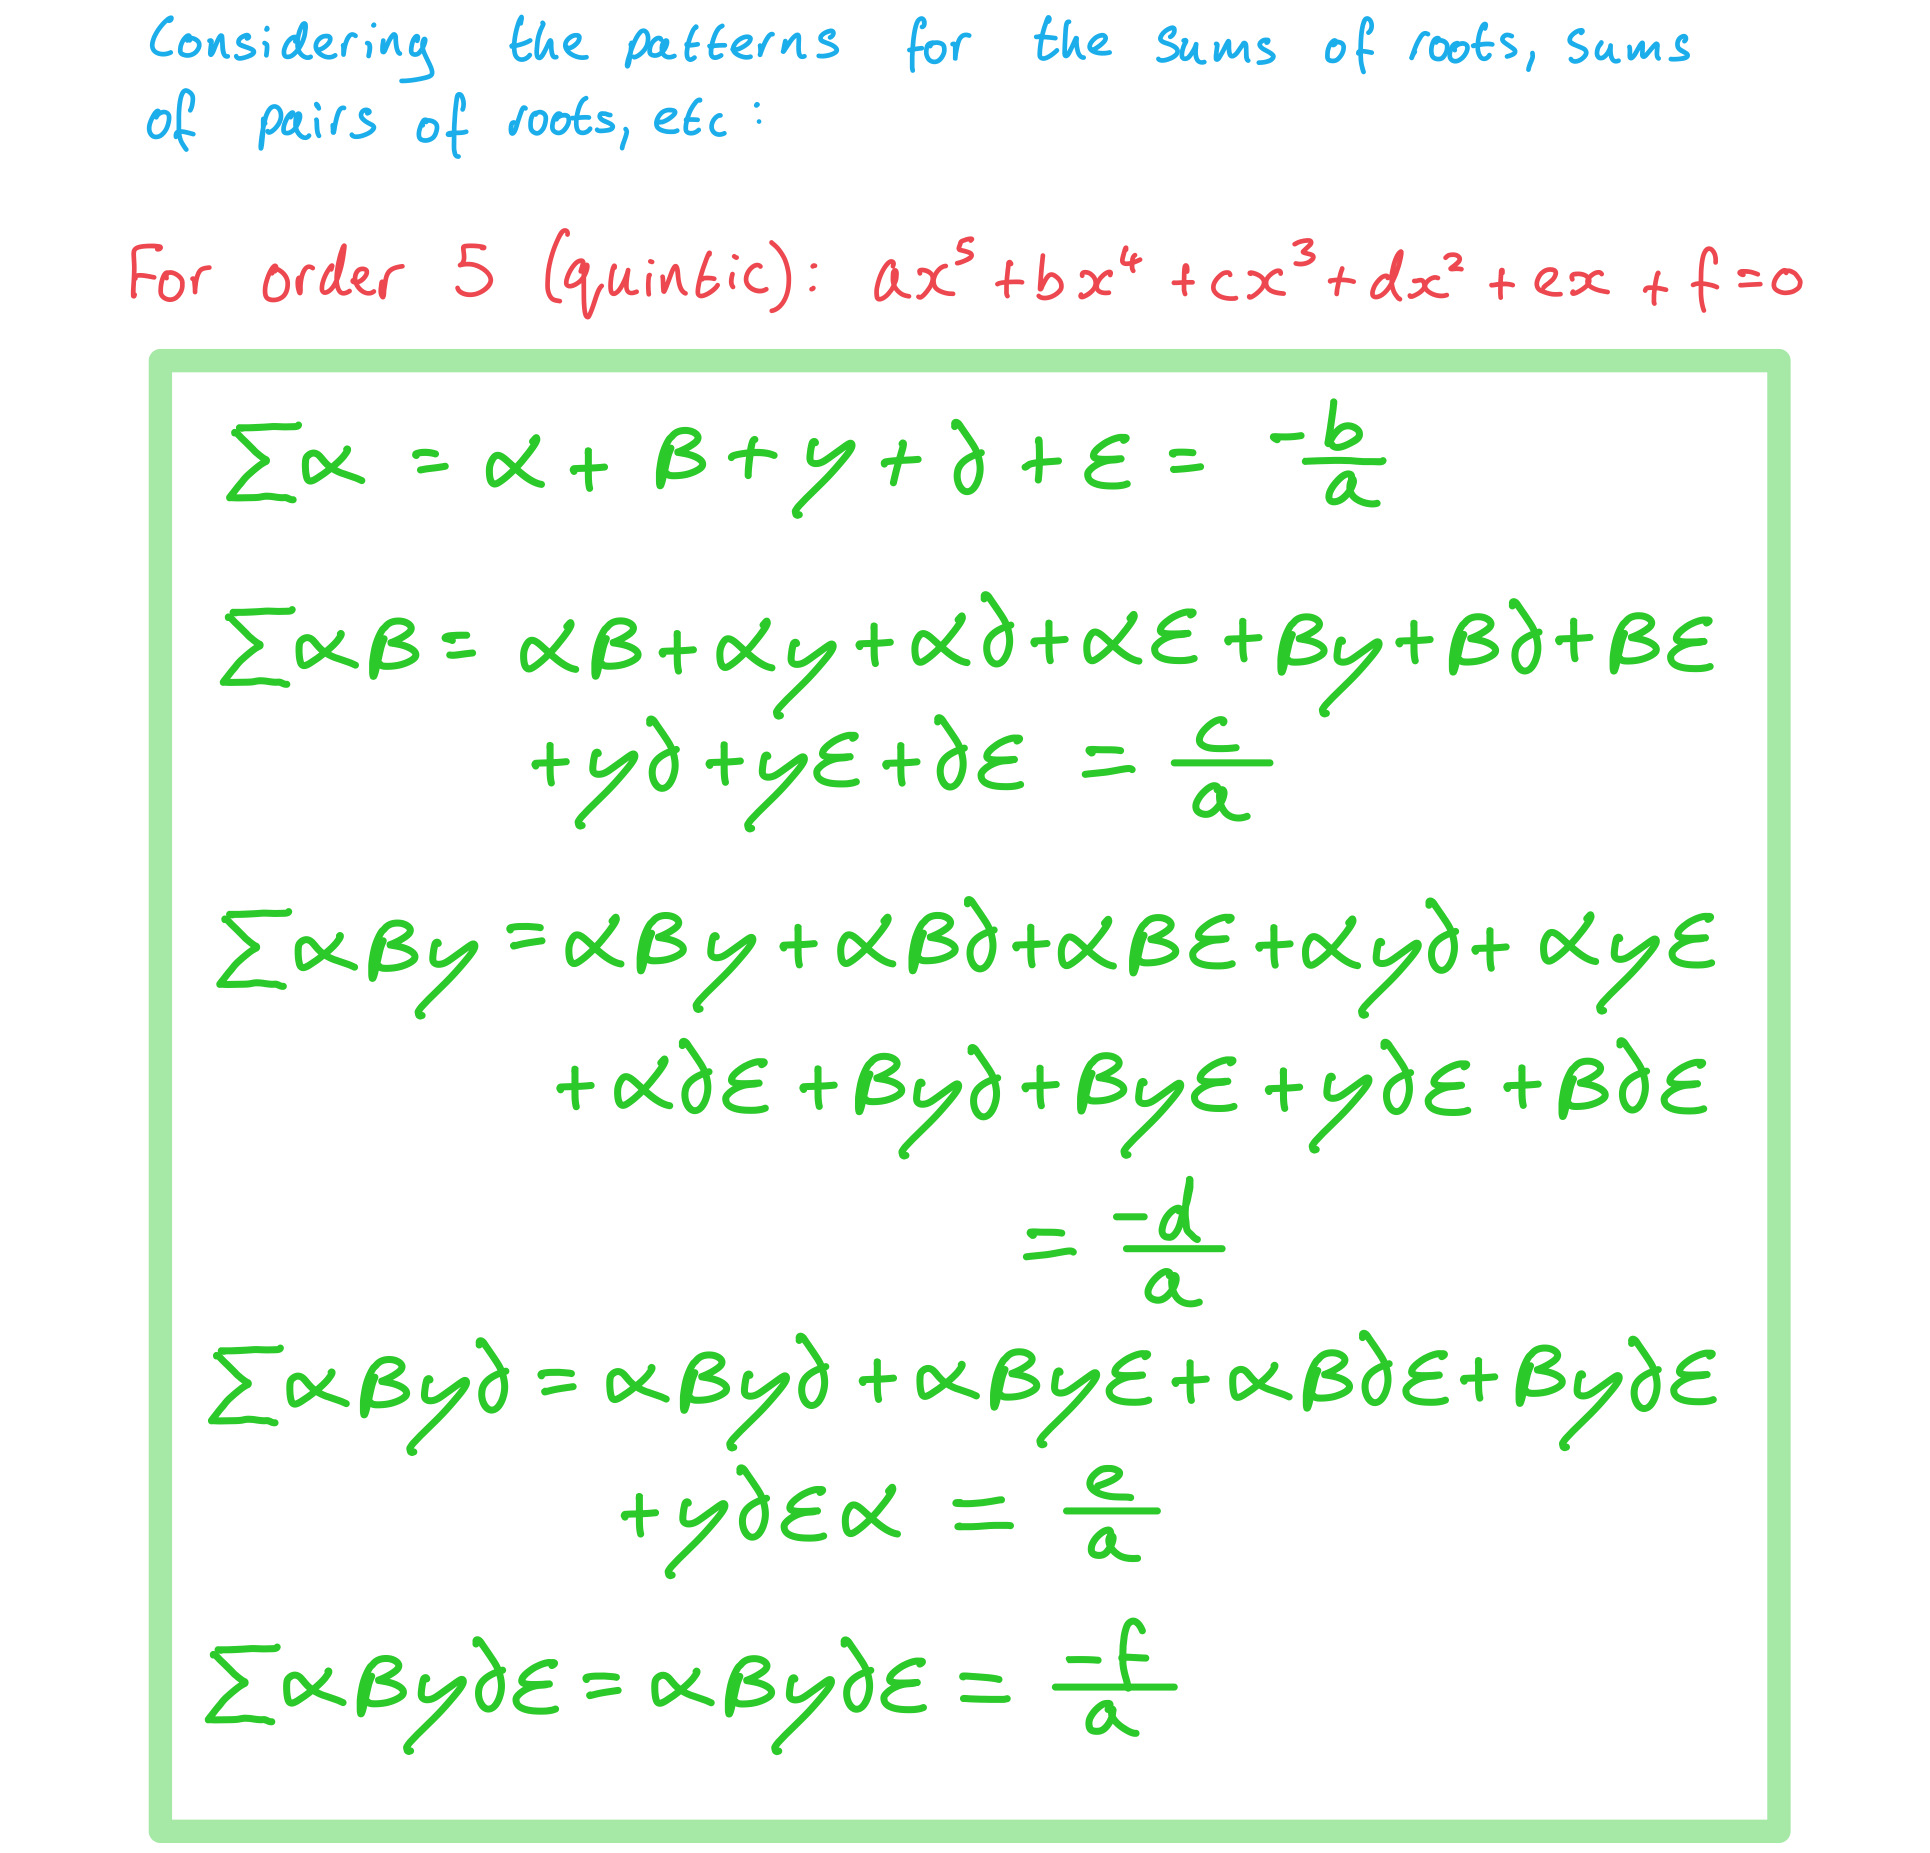 Considering the patterns for the sums of roots, sums
of pairs of roots, etc:
For order 5 (quintic): ax⁵ + bx⁴ + cx³ + dx² + ex + f = 0
∑α = α + β + γ + δ + ε = -b/a
∑αβ = αβ + αγ + αδ + αε + βγ + βδ + βε
+ γδ + γε + δε = c/a
∑αβγ = αβγ + αβδ + αβε + αγδ + αγε
+ αδε + βγδ + βγε + γδε + βδε
= -d/a
∑αβγδ = αβγδ + αβγε + αβδε + βγδε
+ γδεα = e/a
∑αβγδε = αβγδε = -f/a